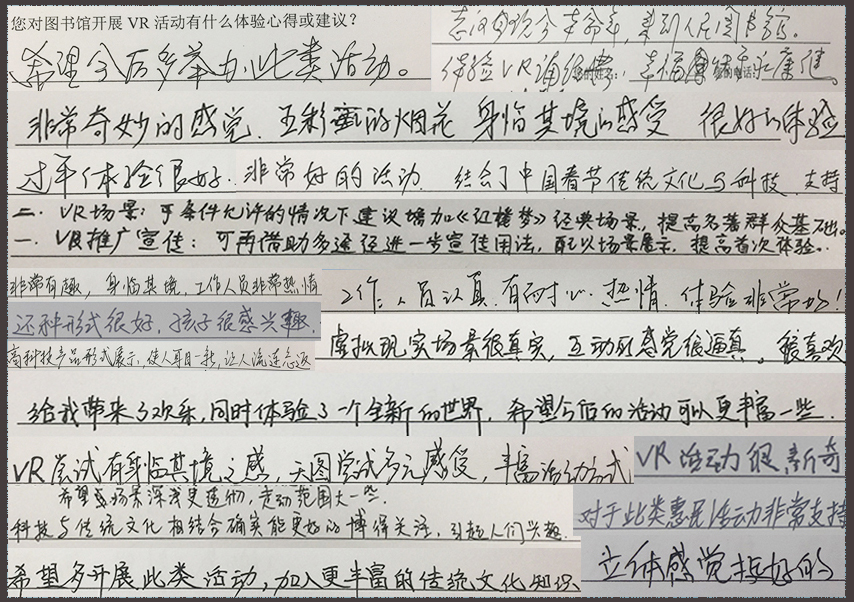 您对图书馆开展 VR 活动有什么体验心得或建议？
希望今后多举办此类活动。
来到人民图书馆。
体验VR诵经典，幸福永康健。
非常奇妙的感觉，五彩的烟花 身临其境的感受 很好的体验
过年体验很好. 非常好的活动 结合了中国春节传统文化与科技，支持
二. VR场景：可条件允许的情况下建议增加《红楼梦》经典场景，提高名著群众基础。
一. VR推广宣传：可再借助多途径进一步宣传用法，配以场景展示，提高首次体验。
非常有趣，身临其境，工作人员非常热情
工作人员认真.有耐心.热情.体验非常好！
这种形式很好，孩子很感兴趣.
高科技产品形式展示，使人耳目一新，让人流连忘返
虚拟现实场景很真实，互动感觉很逼真。很喜欢
给我带来了欢乐，同时体验了一个全新的世界，希望今后的活动可以更丰富一些.
VR尝试有身临其境之感，天图尝试多元感受，丰富活动方式
VR活动很新奇
希望场景深浅更透彻，走动范围大一些.
对于此类惠民活动非常支持
科技与传统文化相结合确实能更好的博得关注，引起人们兴趣.
立体感觉挺好的
希望多开展此类活动，加入更丰富的传统文化知识